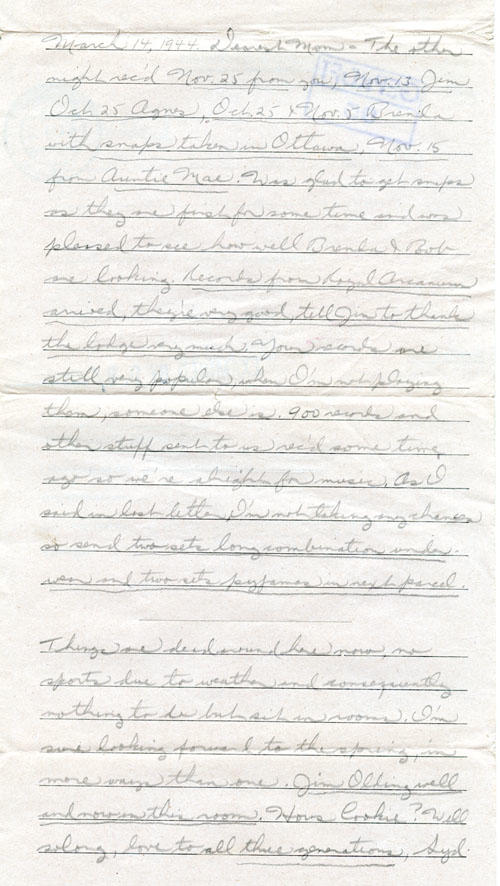 March 14, 1944. Dearest Mom - The other
night rec'd Nov. 25 from you, Nov. 13 Jim
Oct 25 Agnes, Oct. 25 & Nov. 5 Brenda
with snaps taken in Ottawa, Nov. 15
from Auntie Mae. Was glad to get snaps
as they are first for some time and was
pleased to see how well Brenda & Bob
are looking. Records from Royal Arcanum
arrived, they're very good, tell Jim to thank
the lodge very much. Your records are
still very popular, when I'm not playing
them, someone else is. 900 records and
other stuff sent to us rec'd some time
ago so we're alright for music. As I
said in last letter, I'm not taking any chances
so send two sets long combination under-
wear and two sets pyjamas in next parcel.
Things are dead around here now, no
sports due to weather and consequently
nothing to do but sit in rooms. I'm
sure looking forward to the spring, in
more ways than one. Jim Olding well
and now in this room. Hows Cookie? Well
solong, love to all three generations, Syd.